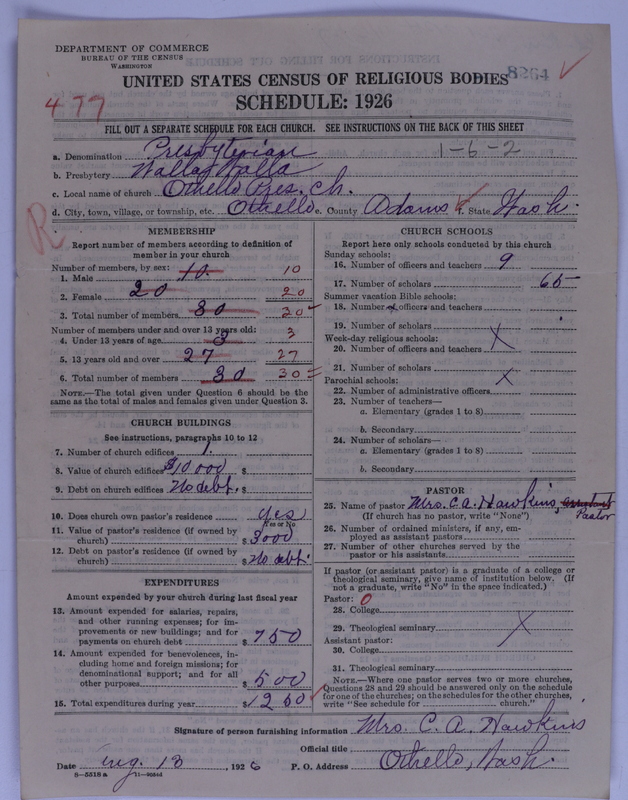 DEPARTMENT OF COMMERCE
BUREAU OF THE CENSUS
WASHINGTON
8264
UNITED STATES CENSUS OF RELIGIOUS BODIES
477
SCHEDULE: 1926
FILL OUT A SEPARATE SCHEDULE FOR EACH CHURCH. SEE INSTRUCTIONS ON THE BACK OF THIS SHEET
1-6-2
a. Denomination Presbyterian
b. Presbytery Walla Walla
c. Local name of church Othello Pres. Ch.
d. City, town, village, or township, etc. Othello e. County Adams f. State Wash.
R
MEMBERSHIP
Report number of members according to definition of
member in your church
Number of members, by sex:
1. Male 10. 10
2. Female 20 20
3. Total number of members 30 30
Number of members under and over 13 years old:
4. Under 13 years of age 3 3
5. 13 years old and over 27 27
6. Total number of members 30 30
NOTE.—The total given under Question 6 should be
same as the total of males and females given under Question 3.
CHURCH BUILDINGS
See instructions, paragraphs 10 to 12
7. Number of church edifices 1.
8. Value of church edifices $10000 $
9. Debt on church edifices No debt. $
10. Does church own pastor's residence yes
Yes or No
11. Value of pastor's residence (if owned by
church) $ 3000
12. Debt on pastor's residence (if owned by
church) $ No debt.
EXPENDITURES
Amount expended by your church during last fiscal year
13. Amount expended for salaries, repairs,
and other running expenses; for im-
provements or new buildings; and for
payments on church debt $ 750
14. Amount expended for benevolences, in-
cluding home and foreign missions; for
denominational support; and for all
other purposes $ 500
15. Total expenditures during year $ 1250
CHURCH SCHOOLS
Report here only schools conducted by this church
Sunday schools:
16. Number of officers and teachers 9
17. Number of scholars 65
Summer vacation Bible schools:
18. Number of officers and teachers
19. Number of scholars
Week-day religious schools:
20. Number of officers and teachers X
21. Number of scholars
Parochial schools: X
22. Number of administrative officers
23. Number of teachers—
a. Elementary (grades 1 to 8)
b. Secondary
24. Number of scholars—
a. Elementary (grades 1 to 8)
b. Secondary
PASTOR
25. Name of pastor Mrs. C. A. Hawkins, assistant
(If church has no pastor, write "None") Pastor
26. Number of ordained ministers, if any, em-
ployed as assistant pastors
27. Number of other churches served by the
pastor or his assistants
If pastor (or assistant pastor) is a graduate of a college or
theological seminary, give name of institution below. (If
not a graduate, write "No" in the space indicated.)
Pastor: 0
28. College
29. Theological seminary X
Assistant pastor:
30. College
31. Theological seminary
NOTE.—Where one pastor serves two or more churches,
Questions 28 and 29 should be answered only on the schedule
for one of the churches; on the schedules for the other churches,
write "See schedule for church."
Signature of person furnishing information Mrs. C. A. Hawkins
Official title
Date Aug. 18, 1926 P. O. Address Othello, Wash.
8—5518a